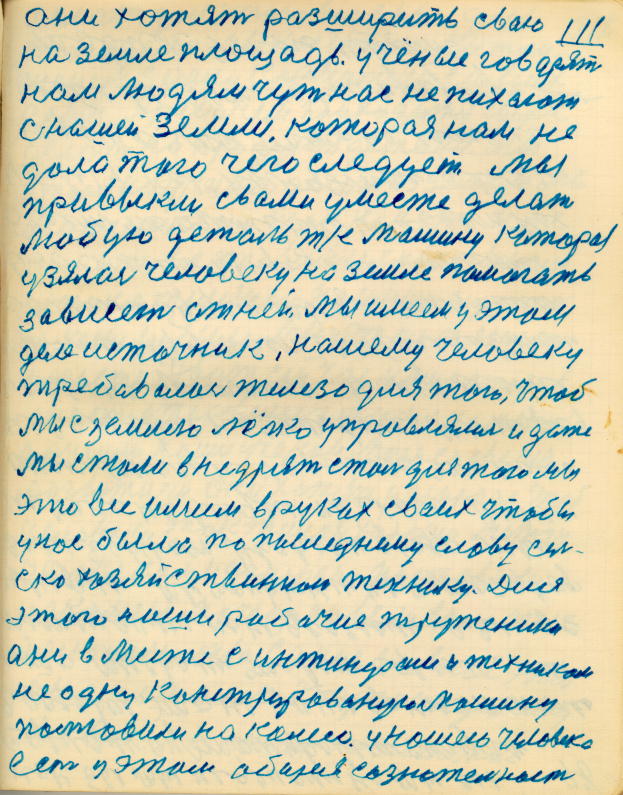 ани хотят разширить сваю 111
на земле площадь. учёные говарят
нам людям чут нас не пихают
с нашей Земли, которая нам не
дала того чего следует. Мы
привыкли свами уместе делат
любую деталь т/к машину катора
узялас человеку на земле помагать
зависет отней, мы имеем у этом
деле источник, нашему человеку
требавалас железо для того, чтоб
мы с землею лёгко управлялис и даже
мы стали внедрят стал для того мы
это все имием в руках сваих чтобы
у нас была по последнему слову сел-
ско хозяйственною технику. Для
этого наши рабочие труженики
ани в месте с инжинерами и техникам
не одну конструрованую машину
поставили на калесо. у нашего человека
ест у этом общея сознателност